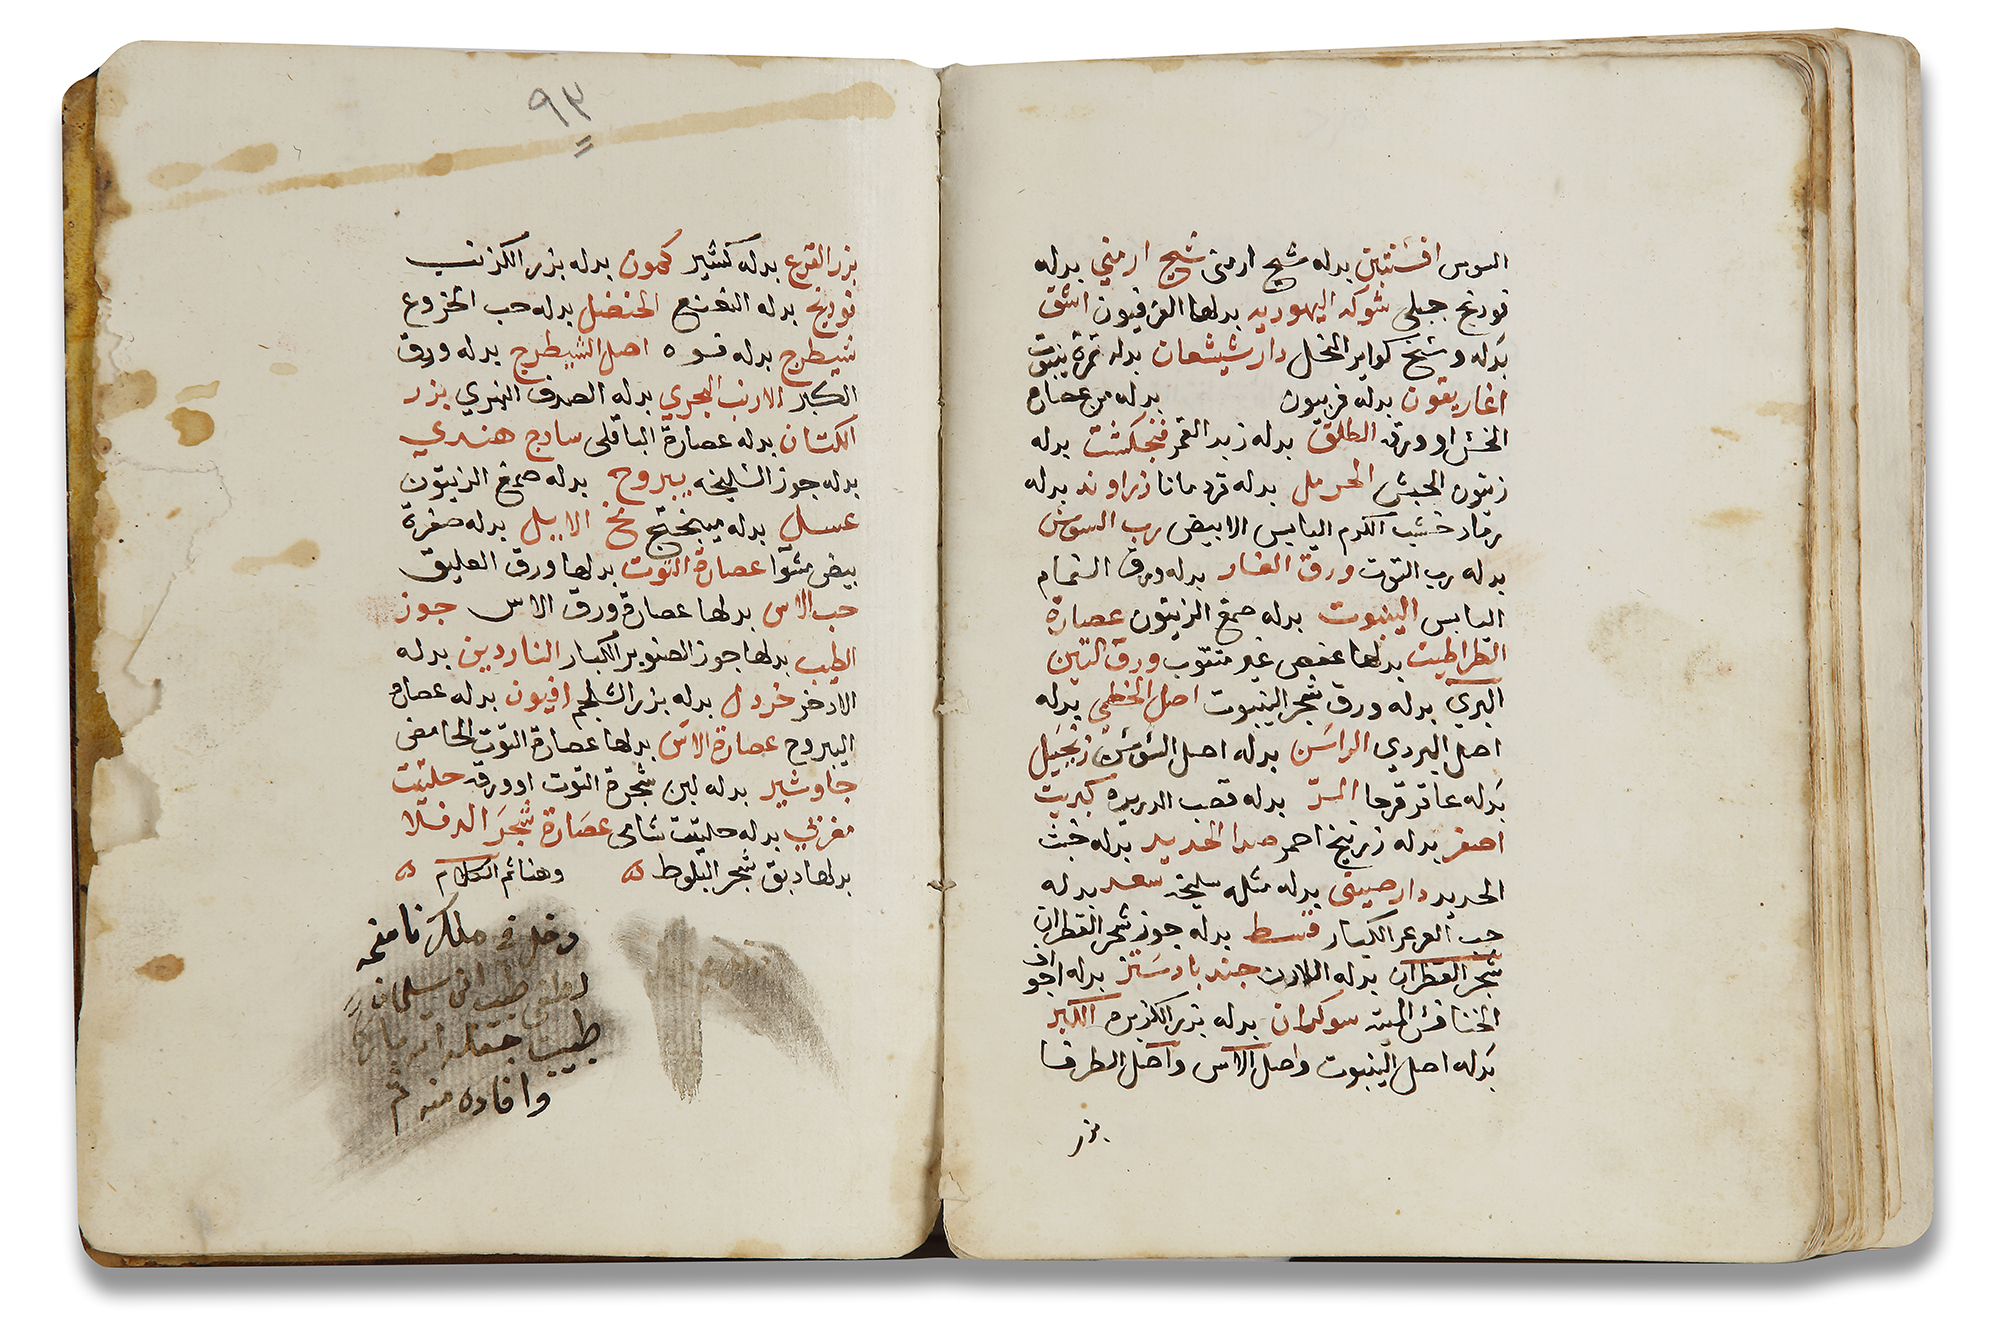 السوس افسنتين بدله شيح ارمنى شيح ارمني بدله
فودنج جبلي شوكه اليهوديه بدلها الفرفيون اشق
بدله وسخ كواير النحل دار شيشعان بدله ثمرة ينبوت
اغاريقون بدله فربيون بدله من عصارة
الخس او ورقه الطلق بدله زبد القمر فنجكشت بدله
زيتون الحبش الحرمل بدله قردمانا زراوند بدله
رماد خشب الكرم اليابس الابيض رب السوس
بدله رب التوت ورق الغار بدله ورق النمام
اليابس الينبوت بدله صمغ الزيتون عصارة
الطراطيث بدلها عفص غير مثقوب ورق التين
البري بدله ورق شجر الينبوت اصل الخطمي بدله
اصل البردي الراسن بدله اصل السوسن زنجبيل
بدله عاقر قرحا المر بدله قصب الدريره كبريت
اصفر بدله زرنيخ احمر صدا الحديد بدله خبث
الحديد دار صيني بدله مثله سليخه سعد بدله
حب العرعر الكبار قسط بدله جوز شجر القطران
شجر القطران بدله اللادن جندبادستر بدله اجواف
الخنافس الميته سوكران بدله بزر الكزبره الكبر
بدله اصل الينبوت واصل الاس واصل الطرفا
بزر
٩٣
بزر القرع بدله كثير كمون بدله بزر الكرنب
فودنج بدله النعنع الحنضل بدله حب الخروع
شيطرج بدله فوه اصل الشيطرج بدله ورق
الكبر الارنب البحري بدله الصدف النهري بزر
الكتان بدله عصارة الباقلى سادج هندي
بدله جوز السليخه يبروح بدله صمغ الزيتون
عسل بدله ميبختج مخ الايل بدله صفرة
بيض مشوا عصارة التوت بدلها ورق العليق
حب الاس بدلها عصارة ورق الاس جوز
الطيب بدلها جوز الصنوبر الكبار الناردين بدله
الادخر خردل بدله بزر الشلجم افيون بدله عصاره
اليبروح عصارة الاس بدلها عصارة التوت الحامض
جاوشير بدله لبن شجرة التوت او ورقه حلتيت
مغربي بدله حلتيت شامى عصارة شجر الدفلا
بدلها دبق شجر البلوط ه وهنا تم الكلام ه
دخل في ملك
طبيب
وافاده منه تم